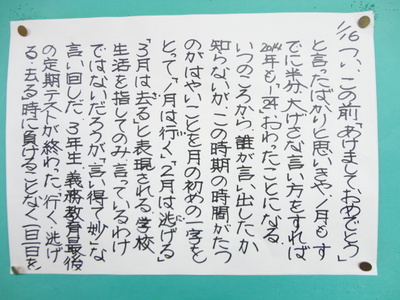 1/16 つい、この前「あけましておめでとう」
と言ったばかりと思いきや、1月もす
でに半分、大げさな言い方をすれば
2014年も"1/24"おわったことになる。
いつのころから、誰が言い出したか
知らないが、この時期の時間がたつ
のがはやいことを月の初めの一字を
とって、「1月は行く」「2月は逃げる」
「3月は去る」と表現される。学校
生活を指してのみ言っているわけ
ではないだろうが「言い得て妙」な
言い回しだ。3年生、義務教育最後
の定期テストが終わった。行く、逃げ
る、去る時に負けることなく一日一日を